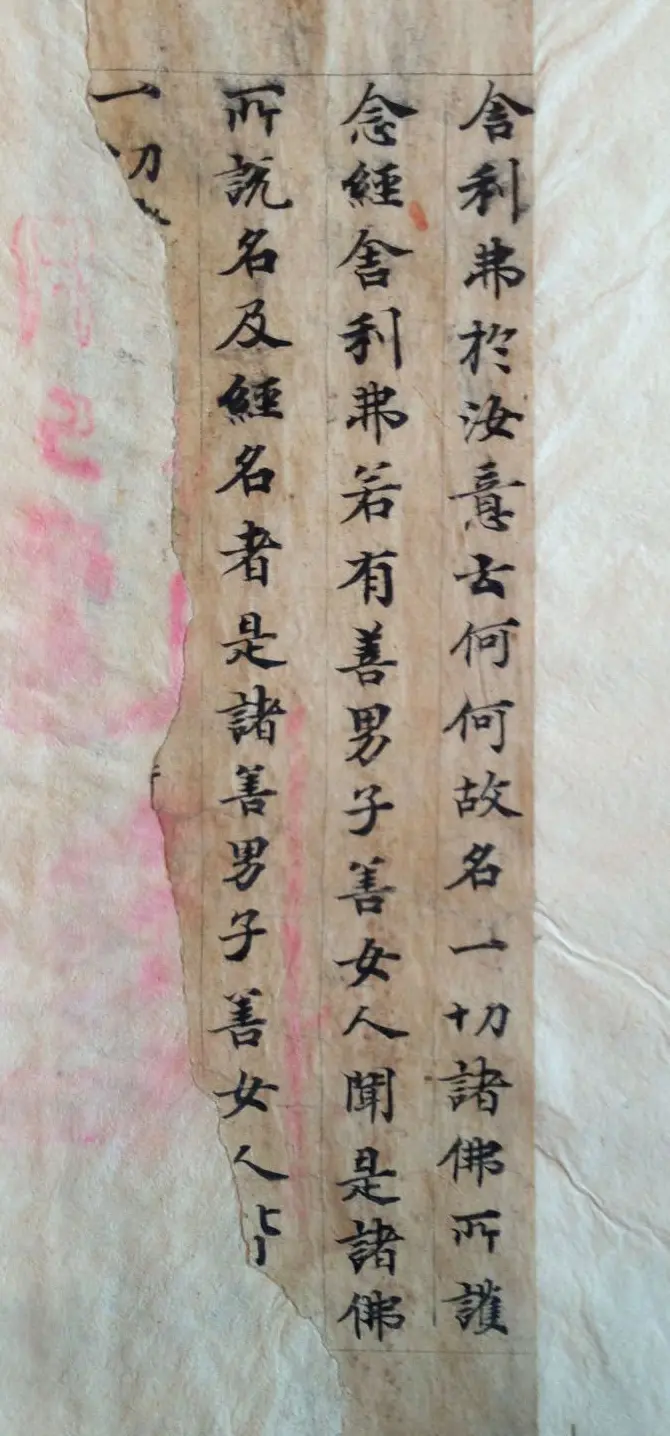 舍利弗於汝意云何何故名一切諸佛所護
念經舍利弗若有善男子善女人聞是諸佛
所說名及經名者是諸善男子善女人
一切